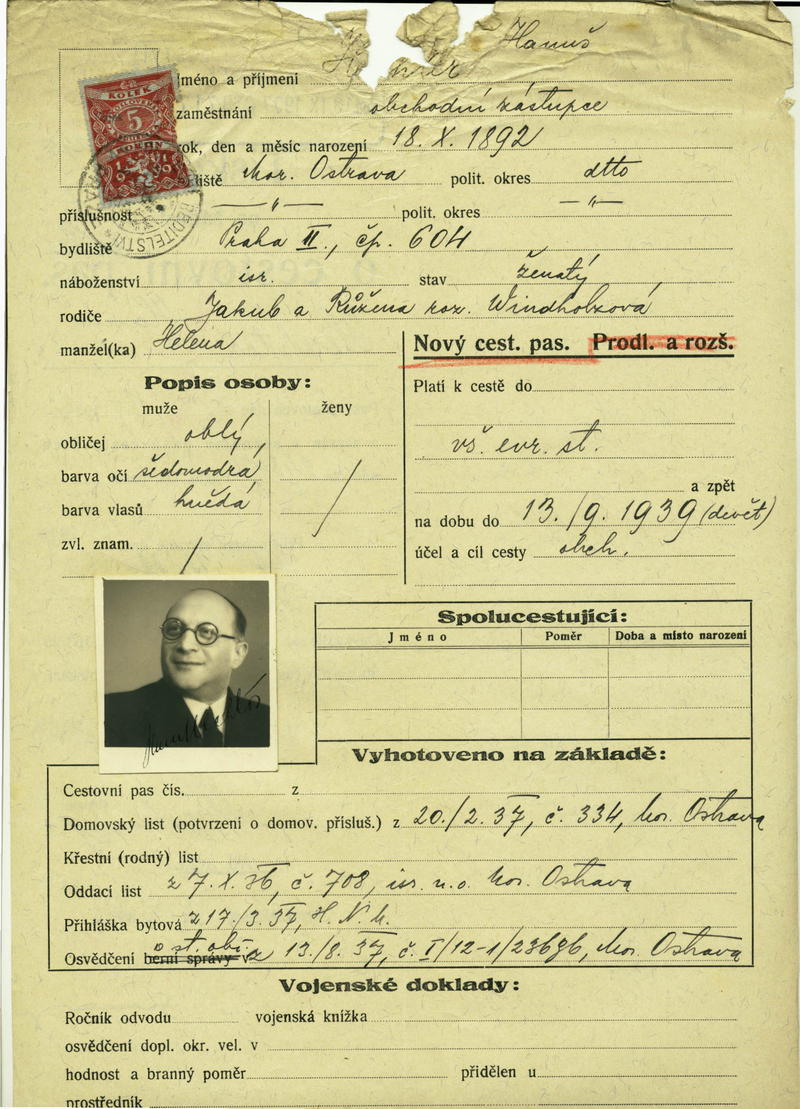 Hanuš
jméno a příjmení
zaměstnání obchodní zástupce
rok, den a měsíc narození 18. X. 1892
Mor. Ostrava polit. okres dtto
příslušnost —〃— polit. okres —〃—
bydliště Praha II., čp. 604
náboženství isr. stav ženatý
rodiče Jakub a Růžena roz. Windholzová
manžel(ka) Helena
KOLEK
5
KOLEK
ŘEDITELSTVÍ
Popis osoby:
muže ženy
obličej oblý,
barva očí šedomodrá
barva vlasů hnědá
zvl. znam.
Nový cest. pas. Prodl. a rozš.
Platí k cestě do
vš. evr. st.
a zpět
na dobu do 13./9. 1939 (devět)
účel a cíl cesty obch.
Spolucestující:
Jméno Poměr Doba a místo narození
Vyhotoveno na základě:
Cestovní pas čís. z
Domovský list (potvrzení o domov. přísluš.) z 20./2. 37, č. 334, Mor. Ostrava
Křestní (rodný) list
Oddací list z 7. X. 36, č. 708, isr. n. o. Mor. Ostrava
Přihláška bytová z 17./3. 37, H. N. M.
o st. obč.
Osvědčení berní správy v z 13./8. 37, č. I/12-1/23686, Mor. Ostrava
Vojenské doklady:
Ročník odvodu vojenská knížka
osvědčení dopl. okr. vel. v
hodnost a branný poměr přidělen u
prostředník